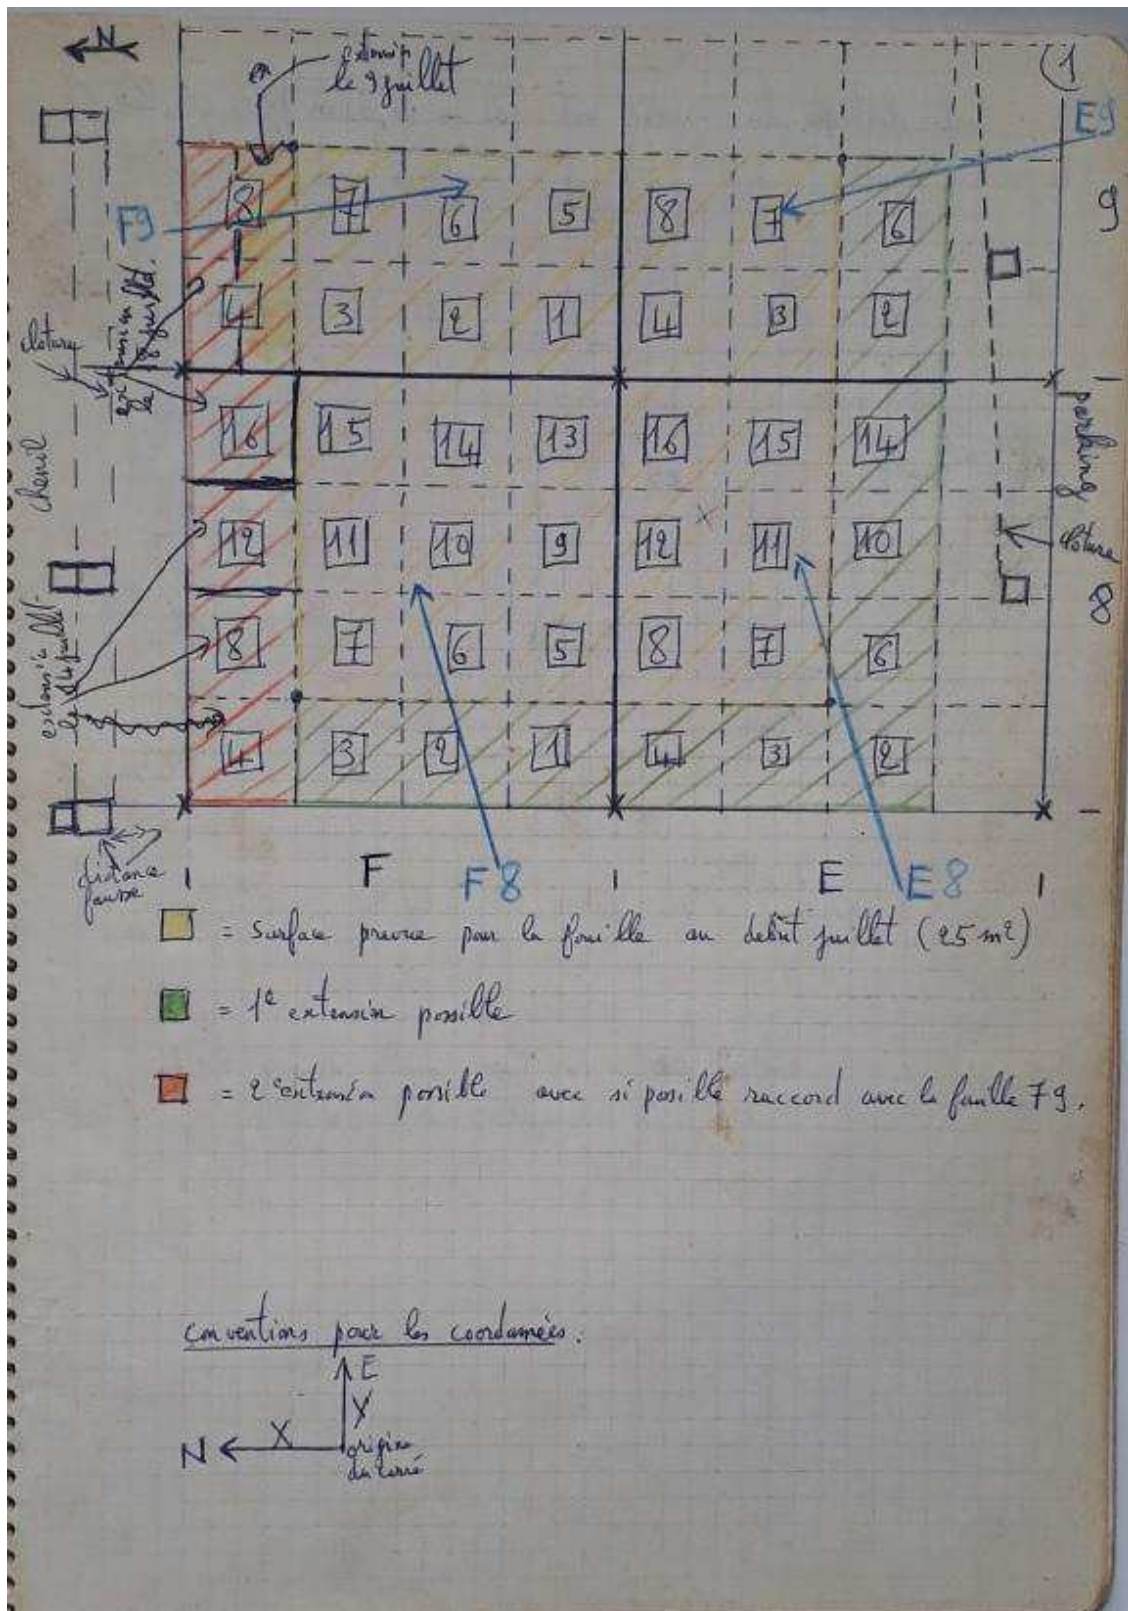 N
extensi
le 9 juillet
en
1
E9
8 7 6 5 8 7 6
9
F9
4 3 2 1 4 3 2
extension
le 8 juillet.
cloture
16 15 14 13 16 15 14
parking
chenil
12 11 10 9 12 11 10
cloture
8 7 6 5 8 7 6
8
extension
le 14 juillet
4 3 2 1 4 3 2
distance
fausse
F F8 E E8
= surface prevue pour la fouille au debut juillet (25 m2)
= 1e extension possible
= 2e extension possible avec si possible raccord avec la fouille 79.
conventions pour les coordonnées :
E
Y
X
N
origine
du carré